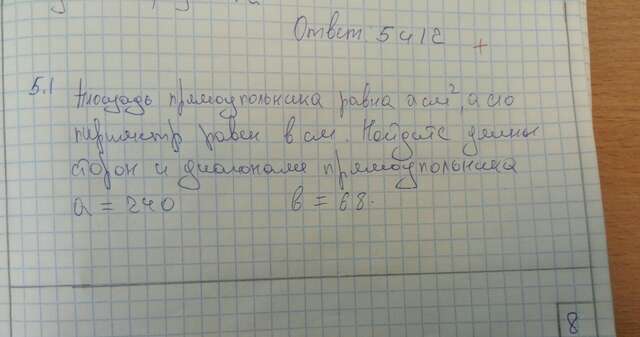 Ответ: 5 и 12
+
5.1 Площадь прямоугольника равна a см², а его
периметр равен в см. Найдите длины
сторон и диагонали прямоугольника
a = 240 в = 68.
8